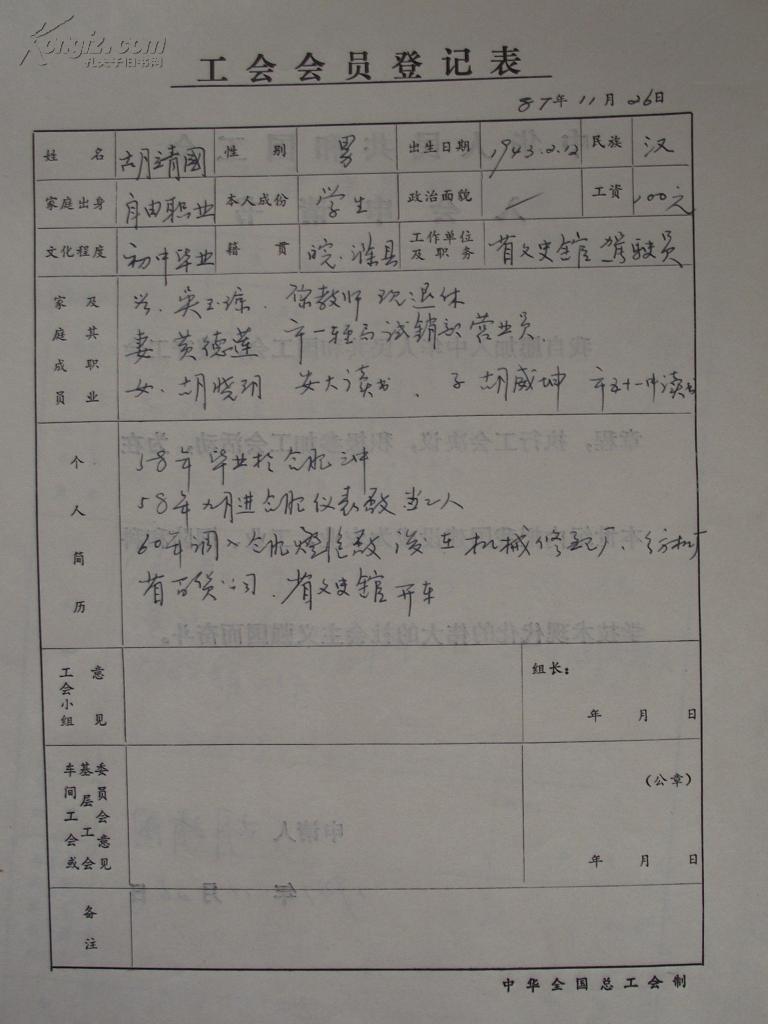 Kongfz.com
孔夫子旧书网
工会会员登记表
87年11月26日
姓名 胡靖國 性别 男 出生日期 1943.2.12 民族 汉
家庭出身 自由职业 本人成份 学生 政治面貌 工资 100元
文化程度 初中毕业 籍贯 皖·滁县 工作单位及职务 省文史馆 驾驶员
家庭成员及其职业
吴玉琼. 教师 现退休
妻 黄德莲 市一轻局试销部营业员.
女. 胡晓玥 安大读书、子 胡威坤 市五十一中读书
个人简历
58年毕业于合肥三中
58年九月进合肥仪表厰当工人
60年调入合肥灯泡厰 後在机械修配厂、纺机厂
省百货公司. 省文史馆开车
工会小组意见 组长:
年 月 日
车间工会或基层工会委员会意见 (公章)
年 月 日
备注
中华全国总工会制